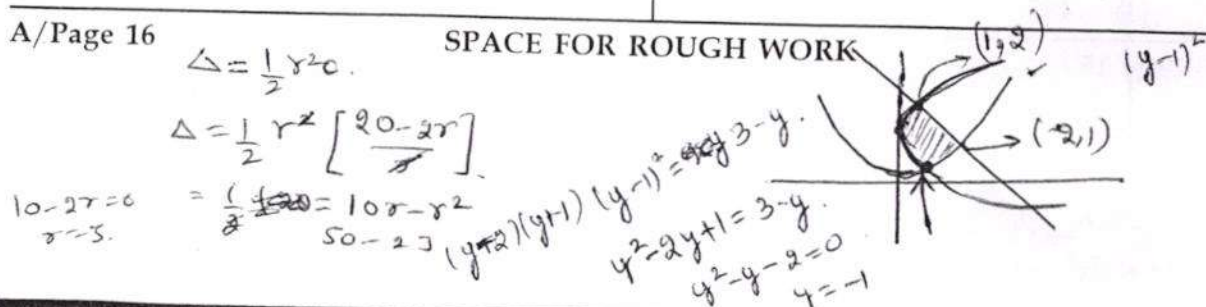 A/Page 16
SPACE FOR ROUGH WORK
Δ = 1/2 r²θ.
Δ = 1/2 r² [20-2r / r]
= 10r - r²
50 - 25
10-2r=0
r=5.
(y-2)(y+1)
(y-1)² = 3-y.
y²-2y+1 = 3-y.
y²-y-2=0
y=-1
(1,2)
(2,1)
(y-1)²